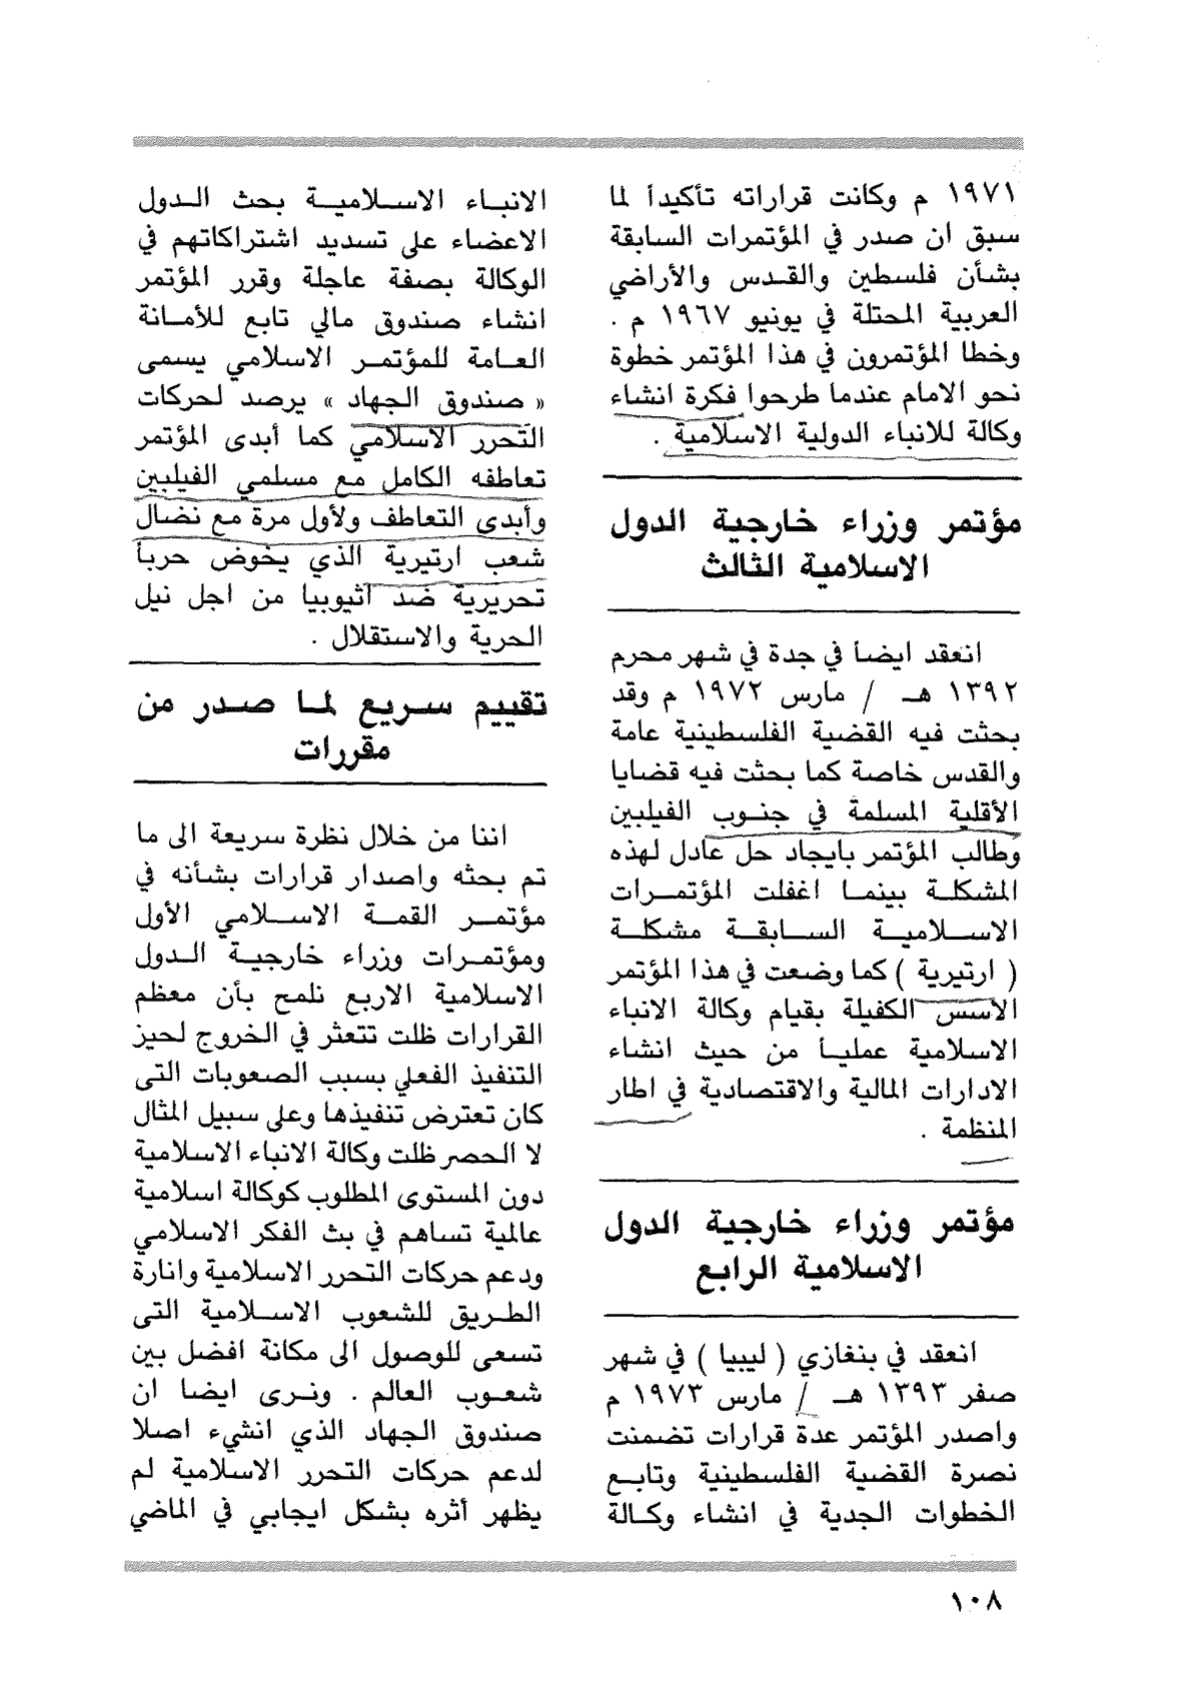 ١٩٧١ م وكانت قراراته تأكيدأ لما
سبق ان صدر في المؤتمرات السابقة
بشأن فلسطين والقدس والأراضي
العربية المحتلة في يونيو ١٩٦٧ م .
وخطا المؤتمرون في هذا المؤتمر خطوة
نحو الامام عندما طرحوا فكرة انشاء
وكالة للانباء الدولية الاسلامية .
مؤتمر وزراء خارجية الدول
الاسلامية الثالث
انعقد ايضأ في جدة في شهر محرم
١٣٩٢ هـ / مارس ١٩٧٢ م وقد
بحثت فيه القضية الفلسطينية عامة
والقدس خاصة كما بحثت فيه قضايا
الأقلية المسلمة في جنوب الفيلبين
وطالب المؤتمر بايجاد حل عادل لهذه
المشكلة بينما اغفلت المؤتمرات
الاسلامية السابقة مشكلة
( ارتيرية ) كما وضعت في هذا المؤتمر
الأسس الكفيلة بقيام وكالة الانباء
الاسلامية عمليأ من حيث انشاء
الادارات المالية والاقتصادية في اطار
المنظمة .
مؤتمر وزراء خارجية الدول
الاسلامية الرابع
انعقد في بنغازي ( ليبيا ) في شهر
صفر ١٣٩٣ هـ / مارس ١٩٧٣ م
واصدر المؤتمر عدة قرارات تضمنت
نصرة القضية الفلسطينية وتابع
الخطوات الجدية في انشاء وكالة
الانباء الاسلامية بحث الدول
الاعضاء على تسديد اشتراكاتهم في
الوكالة بصفة عاجلة وقرر المؤتمر
انشاء صندوق مالي تابع للأمانة
العامة للمؤتمر الاسلامي يسمى
« صندوق الجهاد » يرصد لحركات
التحرر الاسلامي كما أبدى المؤتمر
تعاطفه الكامل مع مسلمي الفيلبين
وأبدى التعاطف ولأول مرة مع نضال
شعب ارتيرية الذي يخوض حربأ
تحريرية ضد أثيوبيا من اجل نيل
الحرية والاستقلال .
تقييم سريع لما صدر من
مقررات
اننا من خلال نظرة سريعة الى ما
تم بحثه واصدار قرارات بشأنه في
مؤتمر القمة الاسلامي الأول
ومؤتمرات وزراء خارجية الدول
الاسلامية الاربع نلمح بأن معظم
القرارات ظلت تتعثر في الخروج لحيز
التنفيذ الفعلي بسبب الصعوبات التى
كان تعترض تنفيذها وعلى سبيل المثال
لا الحصر ظلت وكالة الانباء الاسلامية
دون المستوى المطلوب كوكالة اسلامية
عالمية تساهم في بث الفكر الاسلامي
ودعم حركات التحرر الاسلامية وانارة
الطريق للشعوب الاسلامية التى
تسعى للوصول الى مكانة افضل بين
شعوب العالم . ونرى ايضا ان
صندوق الجهاد الذي انشيء اصلا
لدعم حركات التحرر الاسلامية لم
يظهر أثره بشكل ايجابي في الماضي
١٠٨